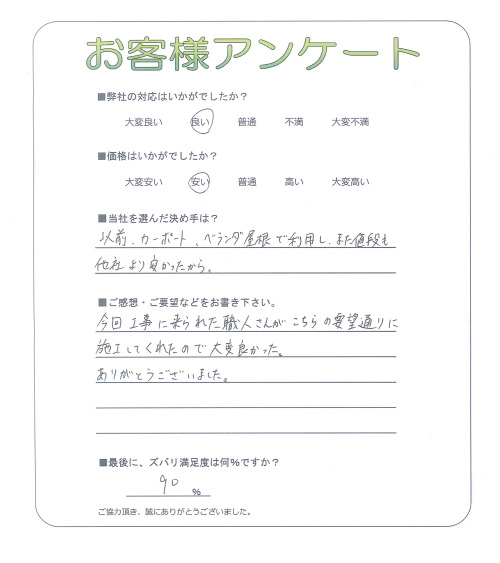 お客様アンケート
■弊社の対応はいかがでしたか？
大変良い 良い 普通 不満 大変不満
■価格はいかがでしたか？
大変安い 安い 普通 高い 大変高い
■当社を選んだ決め手は？
以前、カーポート、ベランダ屋根で利用し、また値段も
他社より良かったから。
■ご感想・ご要望などをお書き下さい。
今回工事に来られた職人さんがこちらの要望通りに
施工してくれたので大変良かった。
ありがとうございました。
■最後に、ズバリ満足度は何％ですか？
90 ％
ご協力頂き、誠にありがとうございました。